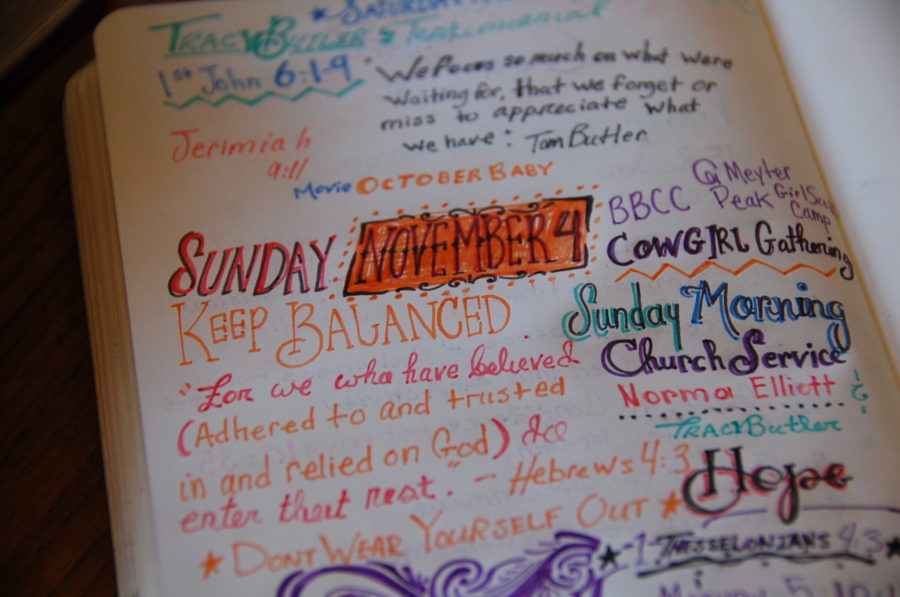 SATURDAY
TRACY BUTLER's Testimonial
1st John 6:1-9
"We Focus so much on what were
waiting for, that we forget or
miss to appreciate what
we have: Tom Butler
Jerimiah
9:11
Movie OCTOBER BABY
SUNDAY NOVEMBER 4
KEEP BALANCED
"For we who have believed
(Adhered to and trusted
in and relied on God) do
enter that rest." - Hebrews 4:3
★ DONT WEAR YOURSELF OUT ★
BBCC @ Meyter
Peak Girl Scout
Camp
COWGIRL Gathering
Sunday Morning
Church Service
Norma Elliott
TRACY Butler
Hope
★ -1 THESSELONIANS 4:3 ★